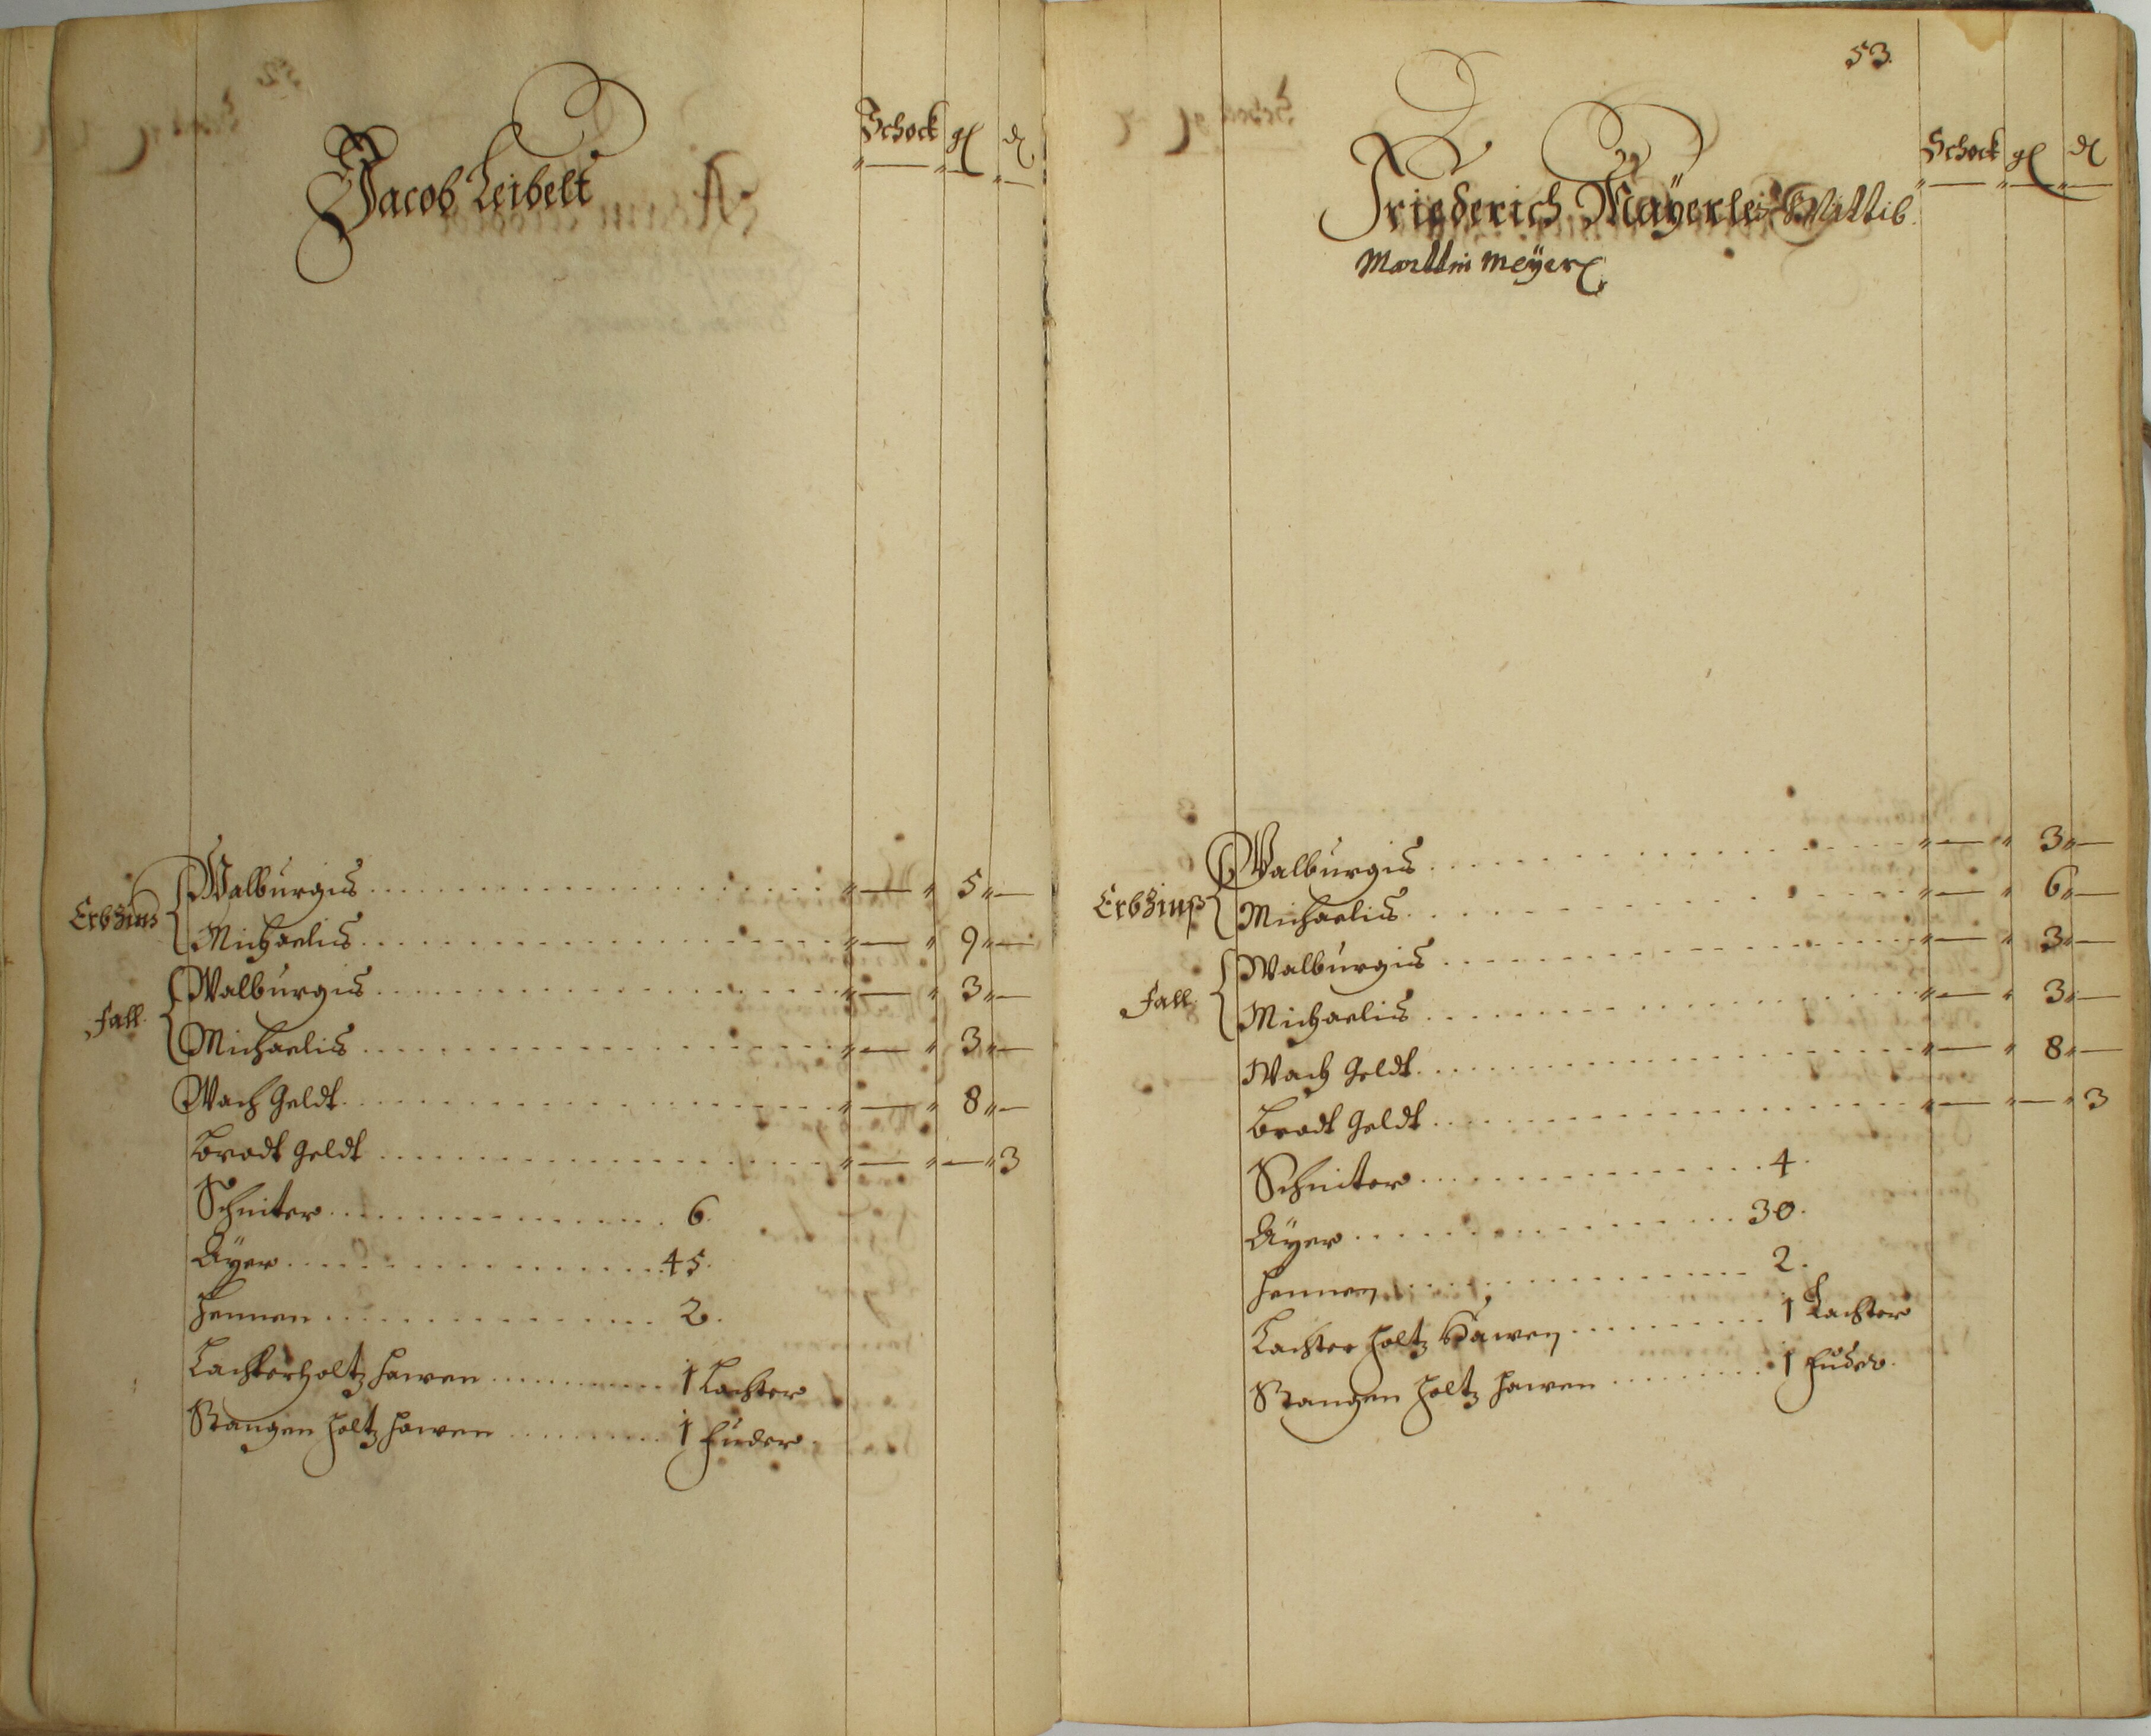 Schock gl dl
Jacob Leibelt
Erbzins Walburgis . . . . . . . . . . " — " 5 " —
Michaelis . . . . . . . . . . " — " 9 " —
Fall. Walburgis . . . . . . . . . . " — " 3 " —
Michaelis . . . . . . . . . . " — " 3 " —
Wach Geldt . . . . . . . . . . " — " 8 " —
Brodt Geldt . . . . . . . . . . " — " — " 3
Schniter . . . . . . . . . . 6.
Ayer . . . . . . . . . . 45.
Hennen . . . . . . . . . . 2.
Lachterholtz hawen . . . . . . . . . . 1 Lachter
Stangen holtz hawen . . . . . . . . . . 1 Fuder.
53.
Schock gl dl
Friederich Mäyerles Wittib.
Marttin Meÿer
Erbzinß Walburgis . . . . . . . . . . " — " 3 " —
Michaelis . . . . . . . . . . " — " 6 " —
Fall. Walburgis . . . . . . . . . . " — " 3 " —
Michaelis . . . . . . . . . . " — " 3 " —
Wach Geldt . . . . . . . . . . " — " 8 " —
Brodt Geldt . . . . . . . . . . " — " — " 3
Schniter . . . . . . . . . . 4.
Ayer . . . . . . . . . . 30.
Hennen . . . . . . . . . . 2.
Lachter holtz hawen . . . . . . . . . . 1 Lachter
Stangen holtz hawen . . . . . . . . . . 1 Fuder.